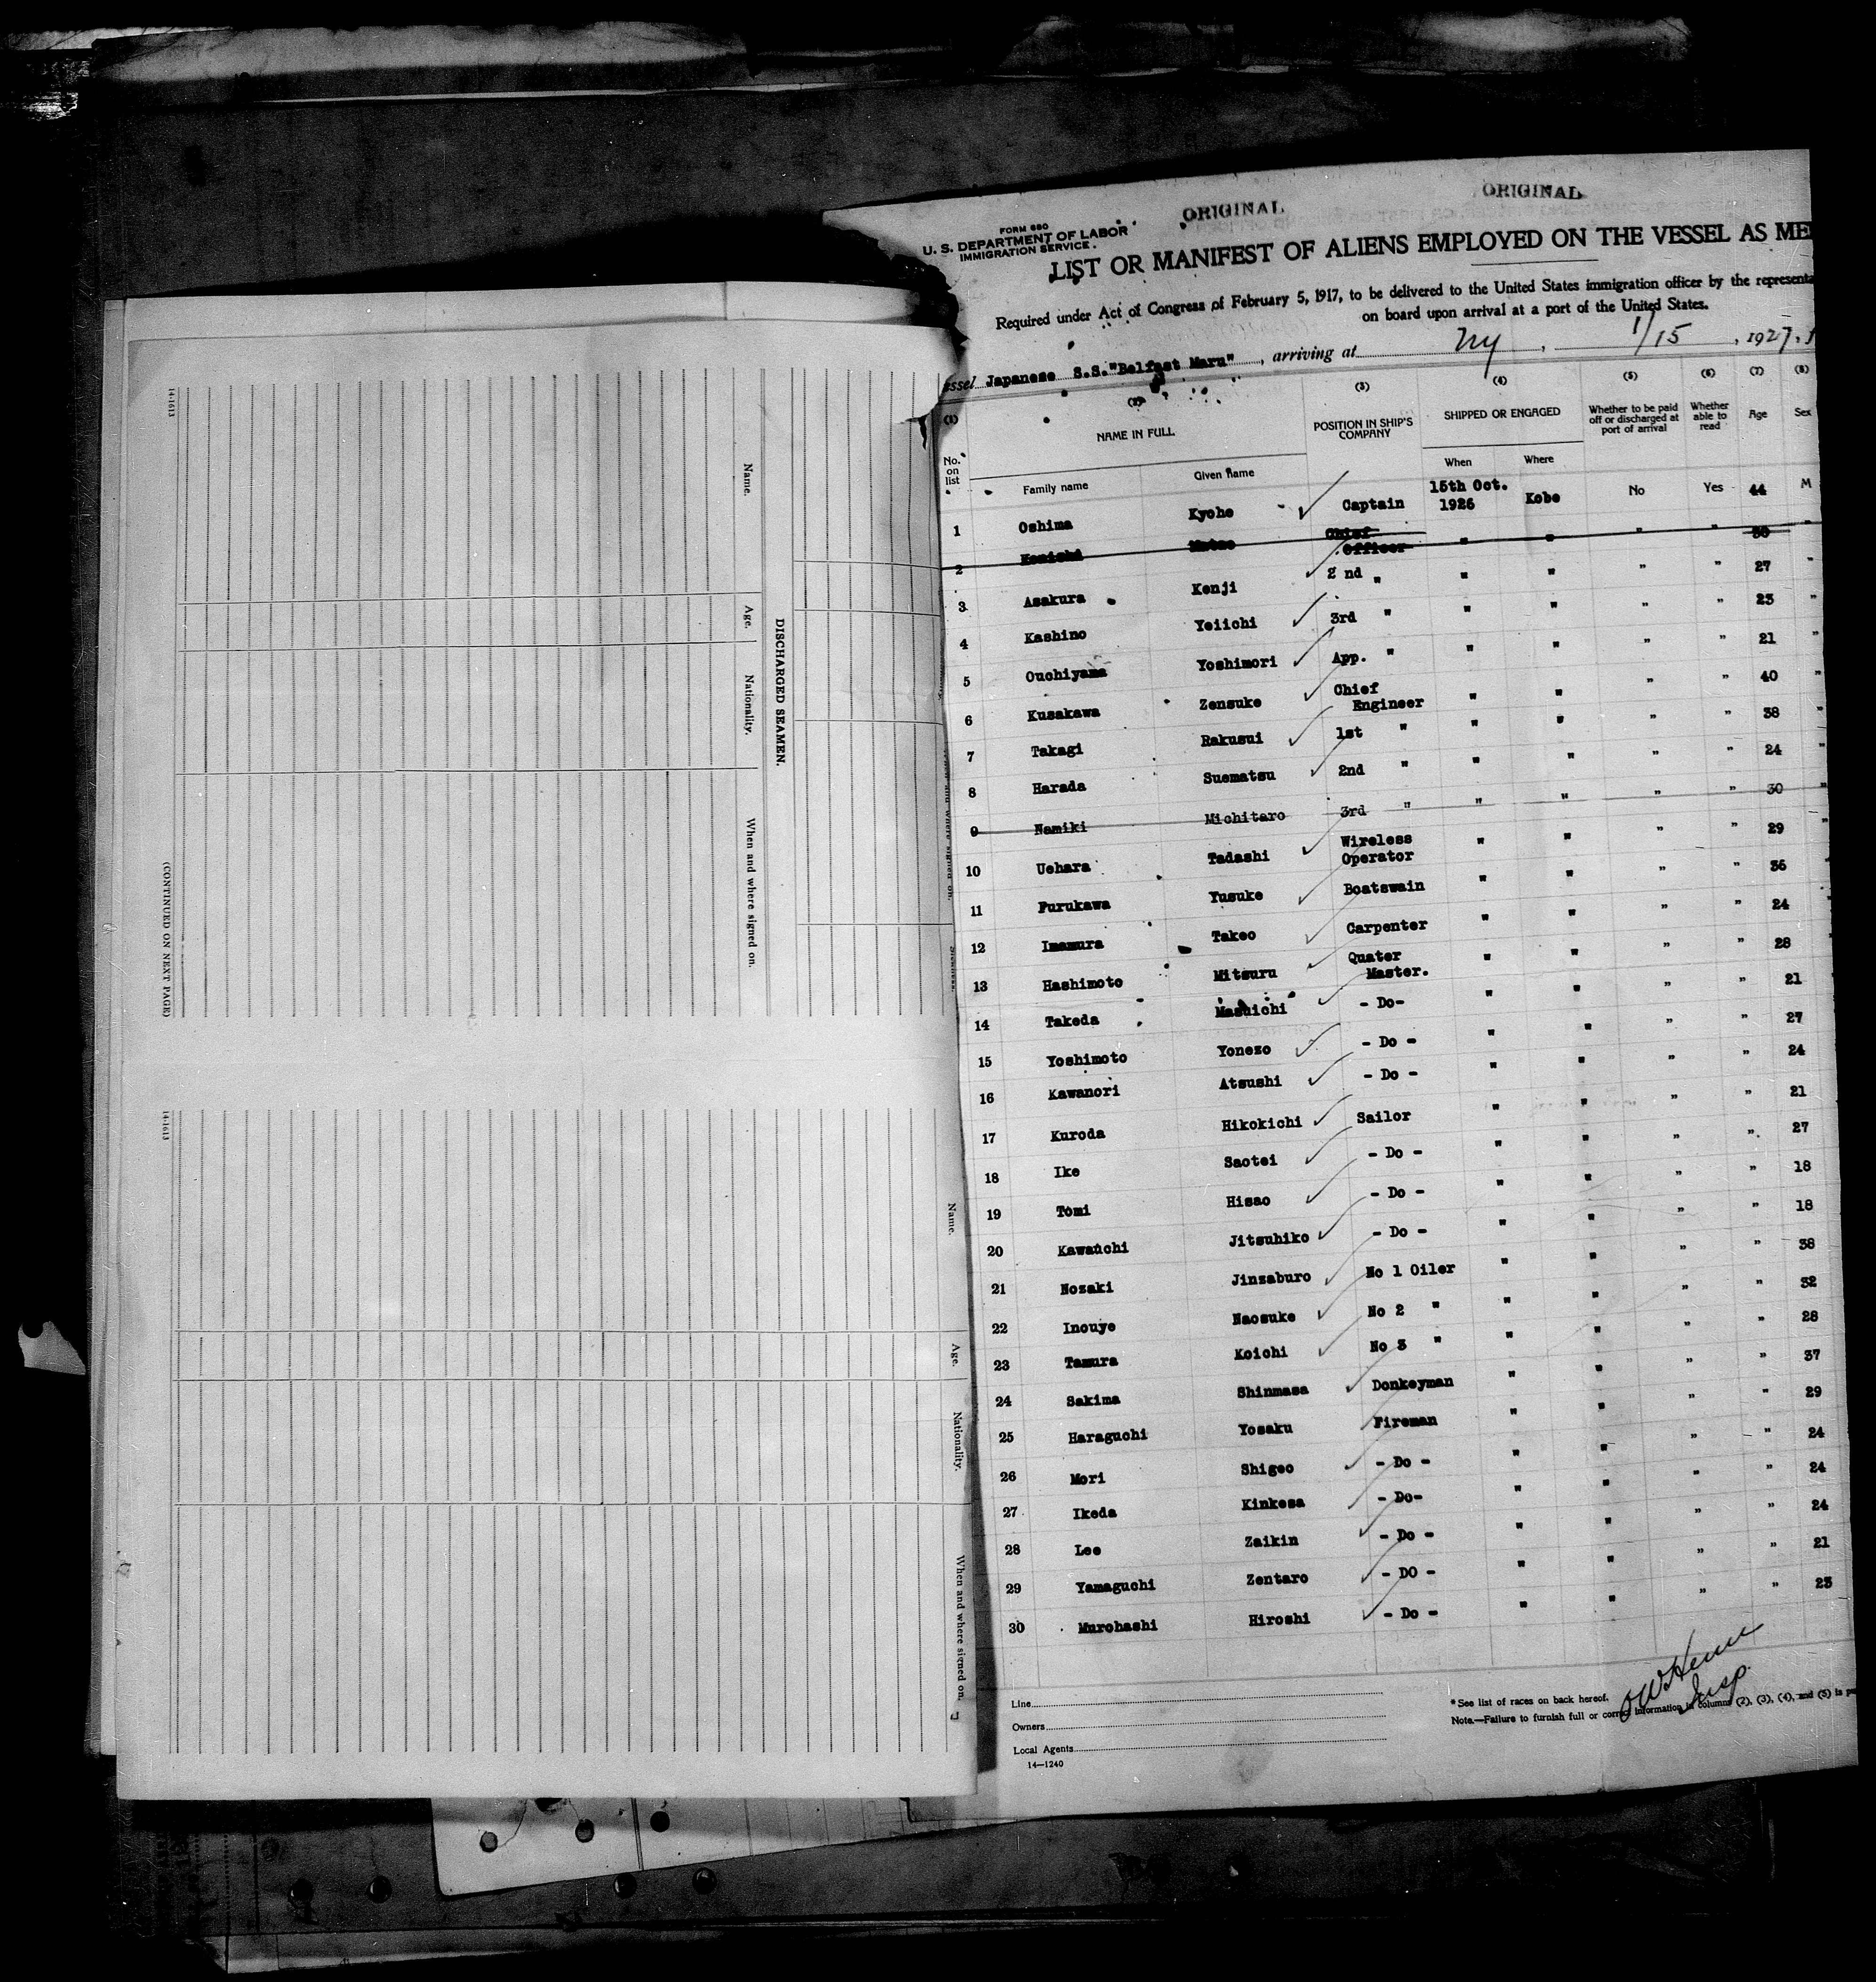 14-1613
Name.
Age.
Nationality.
When and where signed on.
DISCHARGED SEAMEN.
(CONTINUED ON NEXT PAGE)
14-1613
Name.
Age.
Nationality.
When and where signed on.
ORIGINAL ORIGINAL
FORM 680
U. S. DEPARTMENT OF LABOR
IMMIGRATION SERVICE.
LIST OR MANIFEST OF ALIENS EMPLOYED ON THE VESSEL AS ME
Required under Act of Congress of February 5, 1917, to be delivered to the United States immigration officer by the representa
on board upon arrival at a port of the United States.
essel Japanese S.S."Belfast Maru", arriving at NY, 1/15, 1927.
(1) (2) (3) (4) (5) (6) (7) (8)
No. on list NAME IN FULL POSITION IN SHIP'S COMPANY SHIPPED OR ENGAGED Whether to be paid off or discharged at port of arrival Whether able to read Age Sex
Family name Given name When Where
1 Oshima Kyohe Captain 15th Oct. 1926 Kobe No Yes 44 M
2 Konishi Chief Officer " " " " "
3 Asakura Kenji 2 nd " " " " " 27 "
4 Kashino Yeiichi 3rd " " " " " 23 "
5 Ouchiyama Yoshimori App. " " " " " 21 "
6 Kusakawa Zensuke Chief Engineer " " " " 40 "
7 Takagi Rakusui 1st " " " " " 38 "
8 Harada Suematsu 2nd " " " " " 24 "
9 Namiki Michitaro 3rd " " " " " 30 "
10 Uehara Tadashi Wireless Operator " " " " 29 "
11 Furukawa Yusuke Boatswain " " " " 36
12 Imamura Takeo Carpenter " " " " 24
13 Hashimoto Mitsuru Quater Master. " " " " 28
14 Takeda Masuichi - Do- " " " " 21
15 Yoshimoto Yonezo - Do - " " " " 27
16 Kawanori Atsushi - Do - " " " " 24
17 Kuroda Hikokichi Sailor " " " " 21
18 Ike Saotei - Do - " " " " 27
19 Tomi Hisao - Do - " " " " 18
20 Kawauchi Jitsuhiko - Do - " " " " 18
21 Nozaki Jinzaburo No 1 Oiler " " " " 38
22 Inouye Naosuke No 2 " " " " " 32
23 Tamura Koichi No 3 " " " " " 28
24 Sakima Shinmasa Donkeyman " " " " 37
25 Haraguchi Yosaku Fireman " " " " 29
26 Mori Shigeo - Do - " " " " 24
27 Ikeda Kinkesa - Do- " " " " 24
28 Lee Zaikin - Do - " " " " 24
29 Yamaguchi Zentaro - DO - " " " " 21
30 Murohashi Hiroshi - Do - " " " " 23
Line
Owners
Local Agents
14—1240
Insp.
* See list of races on back hereof.
Note.—Failure to furnish full or correct information in columns (2), (3), (4), and (5) is